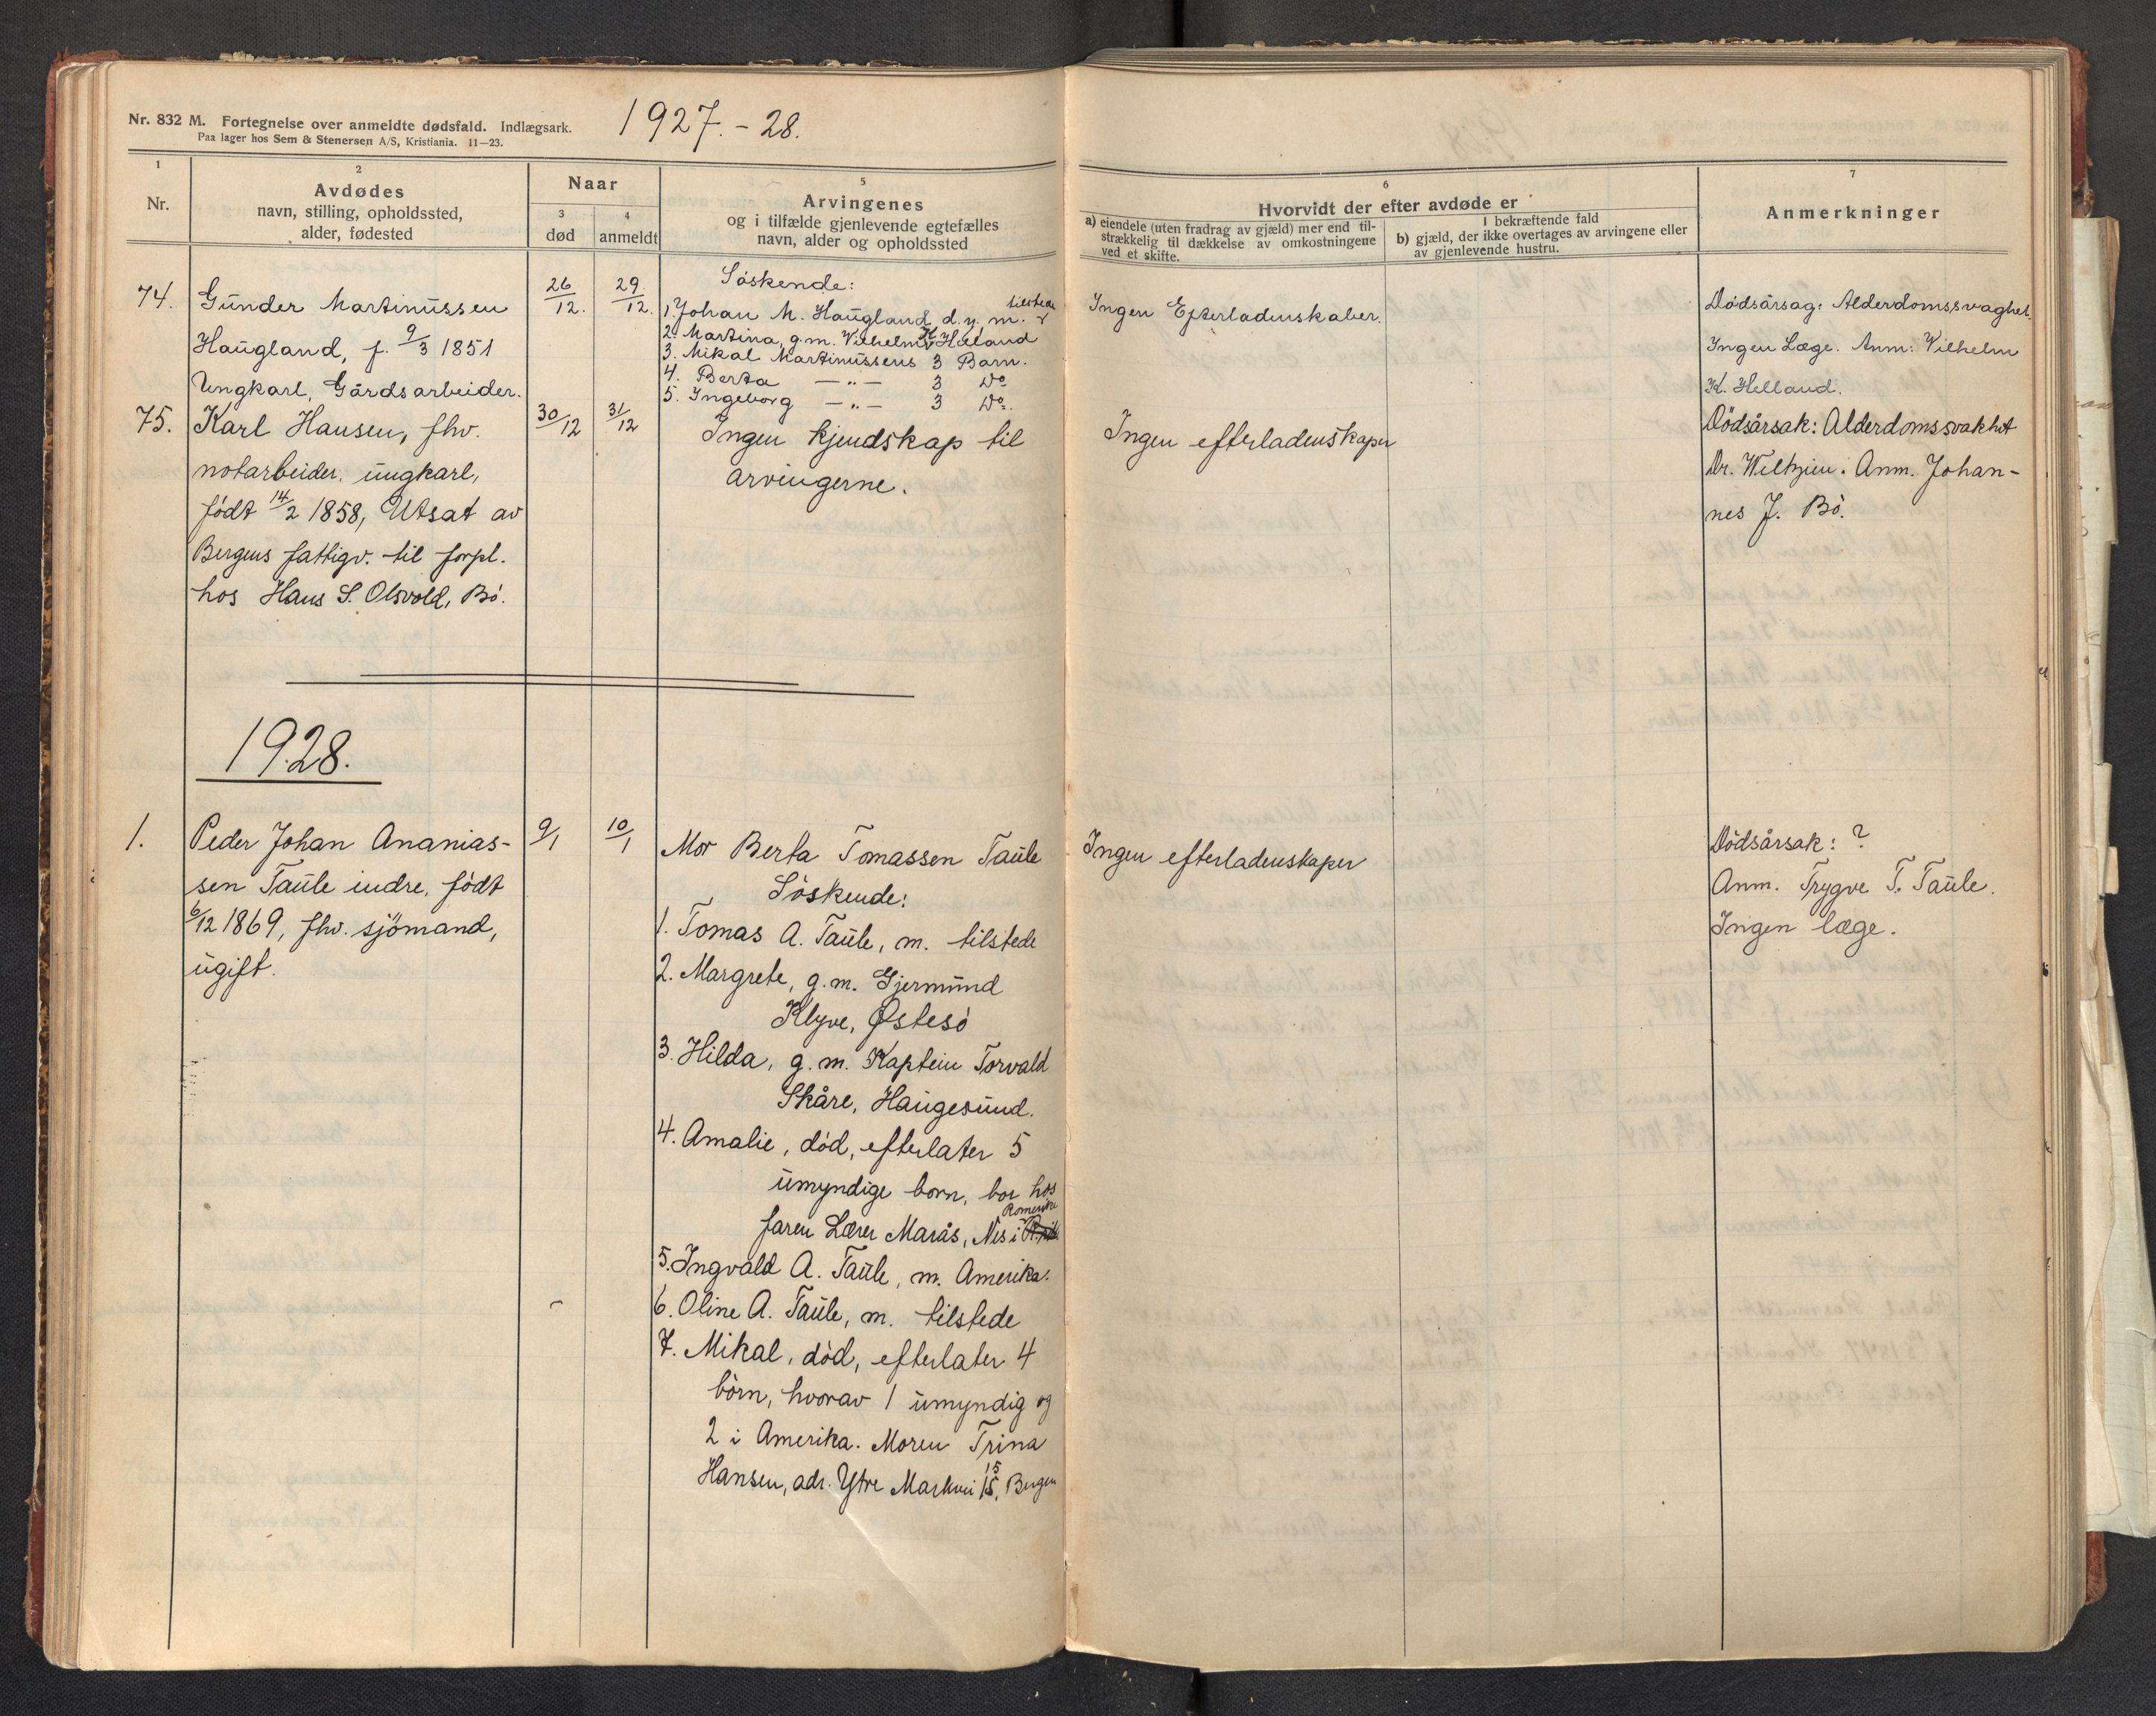 Nr. 832 M. Fortegnelse over anmeldte dødsfald. Indlægsark.
Paa lager hos Sem & Stenersen A/S, Kristiania. 11—23.
1927.-28.
1
Nr.
2
Avdødes
navn, stilling, opholdssted,
alder, fødested
Naar
3
død
4
anmeldt
5
Arvingenes
og i tilfælde gjenlevende egtefælles
navn, alder og opholdssted
6
Hvorvidt der efter avdøde er
a) eiendele (uten fradrag av gjæld) mer end til-
strækkelig til dækkelse av omkostningene
ved et skifte.
I bekræftende fald
b) gjæld, der ikke overtages av arvingene eller
av gjenlevende hustru.
7
Anmerkninger
74.
Gunder Martinussen
Haugland, f. 9/3 1851
Ungkarl, Gårdsarbeider.
26/12.
29/12.
Søskende:
1. Johan M. Haugland d.y. m. tilstede
2. Martina, g.m. Vilhelm K. Helland
3. Mikal Martinussens 3 Barn.
4. Berta —„— 3 Do
5. Ingeborg —„— 3 Do.
Ingen Efterladenskaber.
Dødsårsag: Alderdomssvaghet.
Ingen Læge. Anm: Vilhelm
K. Helland.
75.
Karl Hansen, fhv.
notarbeider, ungkarl,
født 14/2 1858, Utsat av
Bergens fattigv. til forpl.
hos Hans S. Olsvold, Bø.
30/12
31/12
Ingen kjendskap til
arvingerne.
Ingen efterladenskaper
Dödsårsak: Alderdomssvakhet
Dr. Wiltzien. Anm. Johan-
nes J. Bø.
1928.
1.
Peder Johan Ananias-
sen Taule indre, født
6/12 1869, fhv. sjömand,
ugift.
9/1
10/1
Mor Berta Tomassen Taule
Söskende:
1. Tomas A. Taule, m. tilstede
2. Margrete, g.m. Gjermund
Klyve, Østesö
3. Hilda, g.m. Kaptein Torvald
Skåre, Haugesund.
4. Amalie, död, efterlater 5
umyndige born, bor hos
faren Lærer Marås, Nes i Romerike
5. Ingvald A. Taule, m. Amerika.
6. Oline A. Taule, m. tilstede
7. Mikal, död, efterlater 4
börn, hvorav 1 umyndig og
2 i Amerika. Moren Trina
Hansen, adr. Ytre Markvei 15, Bergen
Ingen efterladenskaper
Dödsårsak: ?
Anm. Trygve T. Taule.
Ingen læge.